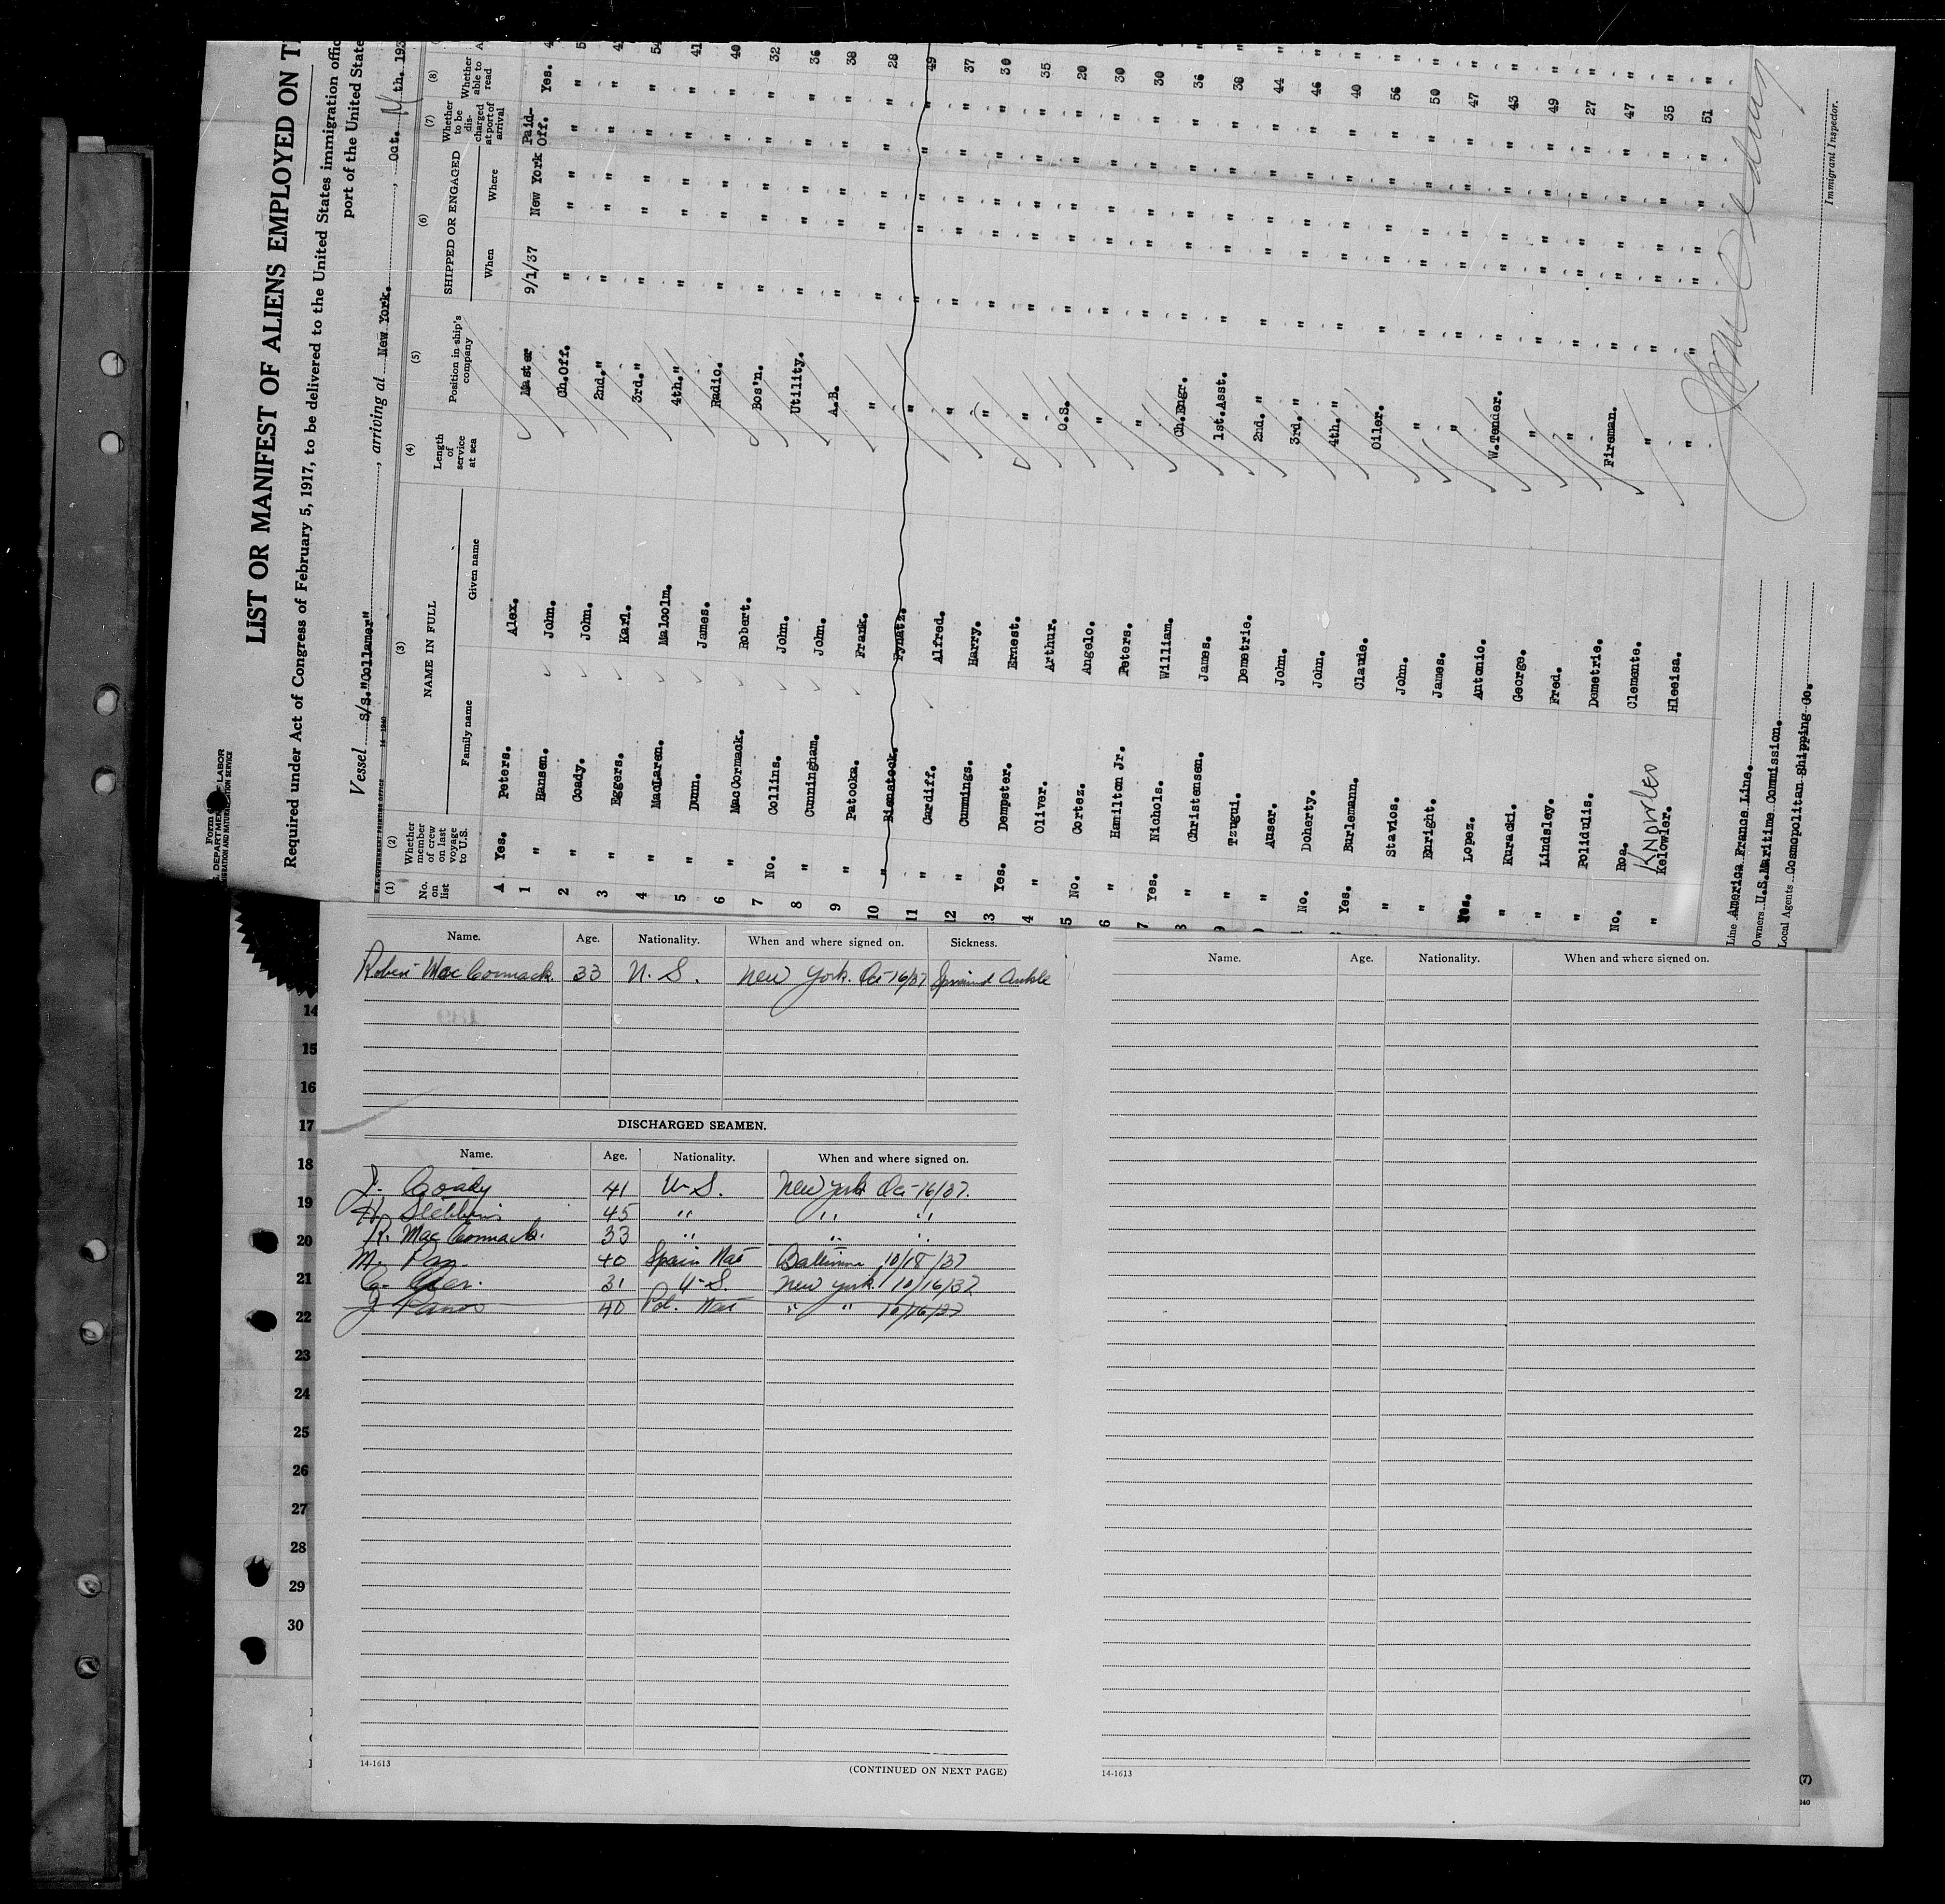 LIST OR MANIFEST OF ALIENS EMPLOYED ON T
Required under Act of Congress of February 5, 1917, to be delivered to the United States immigration offic
port of the United State
Vessel S/S."Collamer", arriving at New York., Oct. th. 193
(1) (2) (3) (4) (5) (6) (7) (8)
No. on list Whether member of crew on last voyage to U.S. NAME IN FULL Family name Given name Length of service at sea Position in ship's company SHIPPED OR ENGAGED When Where Whether to be discharged at port of arrival Whether able to read A
A Yes. Peters. Alex. Master 9/1/37 New York Paid-Off. Yes. 4
1 " Hansen. John. Ch.Off. " " " " 5
2 " Coady. John. 2nd." " " " " 4
3 " Eggers. Karl. 3rd." " " " " 54
4 " MacLaren. Malcolm. 4th." " " " " 41
5 " Dunn. James. Radio. " " " " 40
6 " MacCormack. Robert. Bos'n. " " " " 32
7 No. Collins. John. Utility. " " " " 36
8 " Cunningham. John. A.B. " " " " 38
9 " Patocka. Frank. " " " " " 28
10 " Bienstock. Fynatz. " " " " " 49
11 " Cardiff. Alfred. " " " " " 37
12 " Cummings. Harry. " " " " " 30
3 Yes. Dempster. Ernest. " " " " " 35
4 " Oliver. Arthur. O.S. " " " " 20
5 No. Cortez. Angelo. " " " " " 30
6 " Hamilton Jr. Peters. " " " " " 30
7 Yes. Nichols. William. Ch.Engr. " " " " 36
8 " Christensen. James. 1st.Asst. " " " " 38
9 " Tzugui. Demetrie. 2nd. " " " " " 44
" Auser. John. 3rd. " " " " " 46
No. Doherty. John. 4th." " " " " 40
Yes. Burlemann. Claude. Oiler. " " " " 56
" Stavios. John. " " " " " 50
" Enright. James. " " " " " 47
Yes. Lopez. Antonio. W.Tender. " " " " 43
" Kuracki. George. " " " " " 49
" Lindsley. Fred. " " " " " 27
" Polidulis. Demetrie. Fireman. " " " " 47
No. Roa. Clemente. " " " " " 35
" Kelowler. KNowles Hleeisa. " " " " " 51
Line America France Line.
Owners U.S.Maritime Commission.
Local Agents Cosmopolitan Shipping Co.
Immigrant Inspector.
Name. Age. Nationality. When and where signed on. Sickness.
Robert MacCormack 33 U.S. New York. Oct 16/37 Sprained Ankle
DISCHARGED SEAMEN.
Name. Age. Nationality. When and where signed on.
J. Coady 41 U.S. New York Oct 16/37.
H. Stebbins 45 " " "
R. MacCormack. 33 " " "
M. Paz. 40 Spain Nat Baltimore 10/18/37
31 U.S. New York 10/16/37
40 Pol. Nat " " 10/16/37
14
15
16
17
18
19
20
21
22
23
24
25
26
27
28
29
30
14-1613
(CONTINUED ON NEXT PAGE)
Name. Age. Nationality. When and where signed on.
14-1613